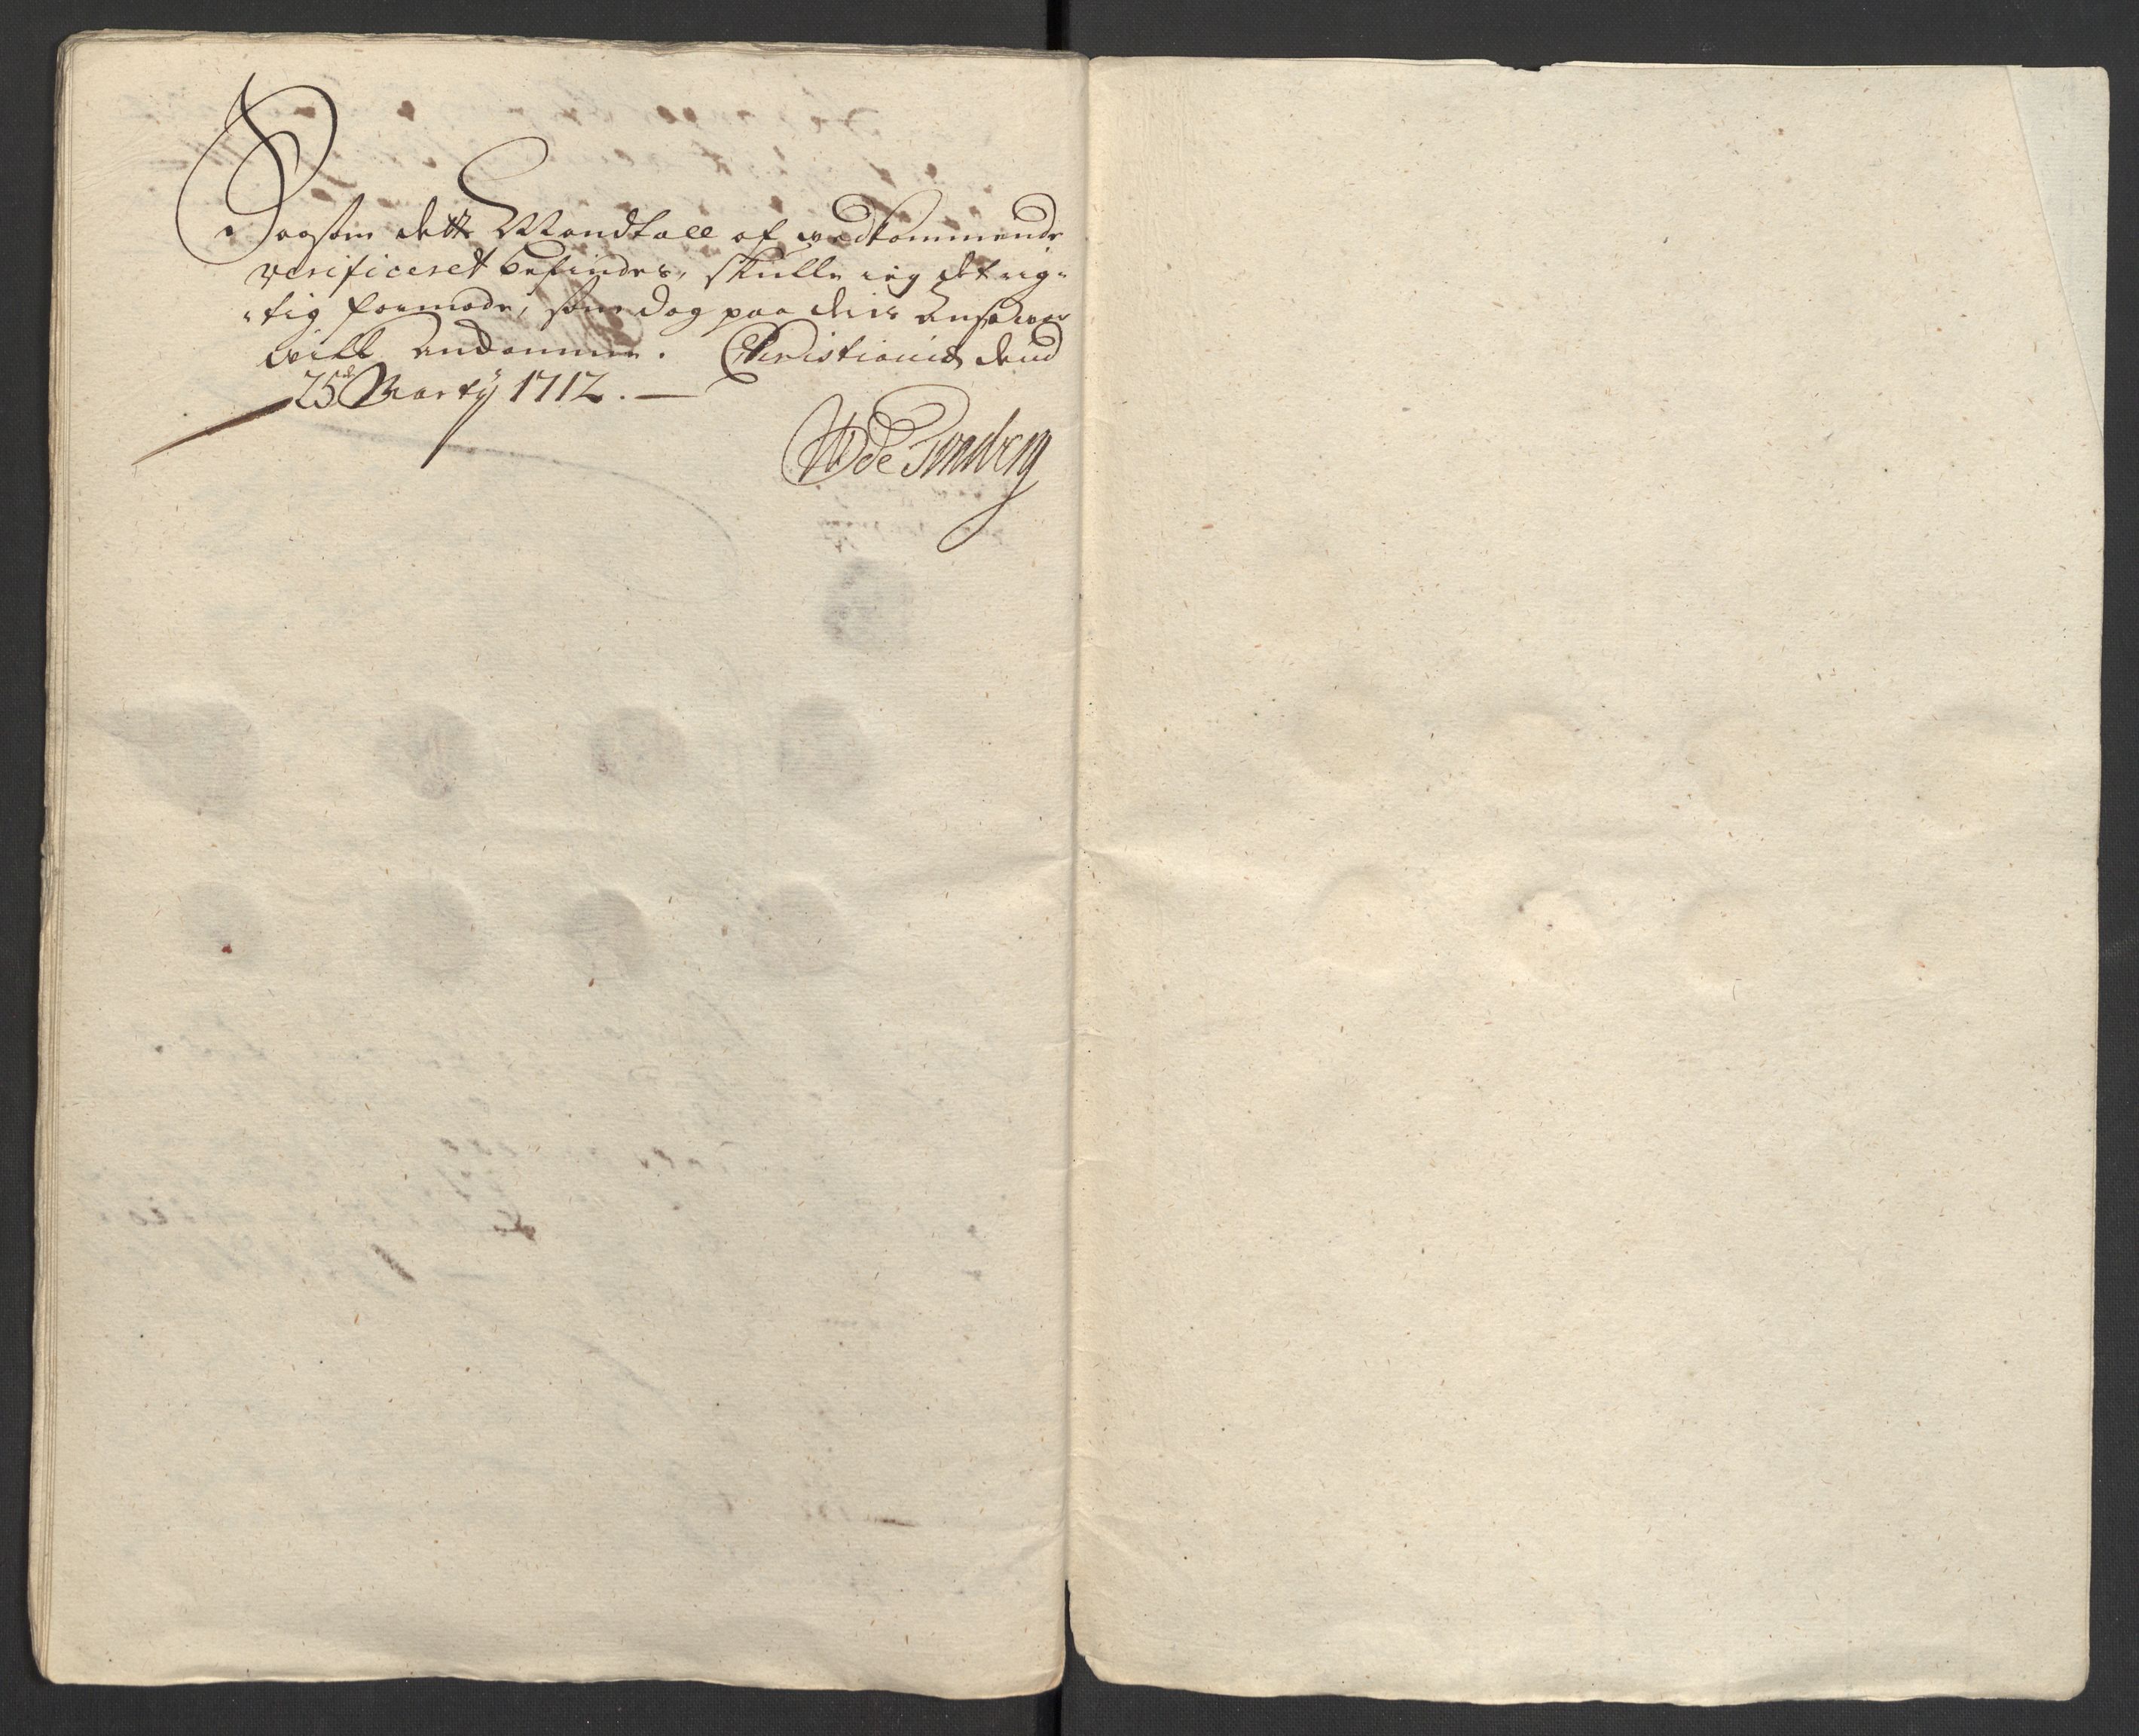 Saasom dette Mandtall af wedkommende
verificeret befindes, skulle ieg det rig-
-tig formode, som dog paa deris ansvar
will andkomme. Christiania dend
25de Marty 1712. —
WDe Tonsberg